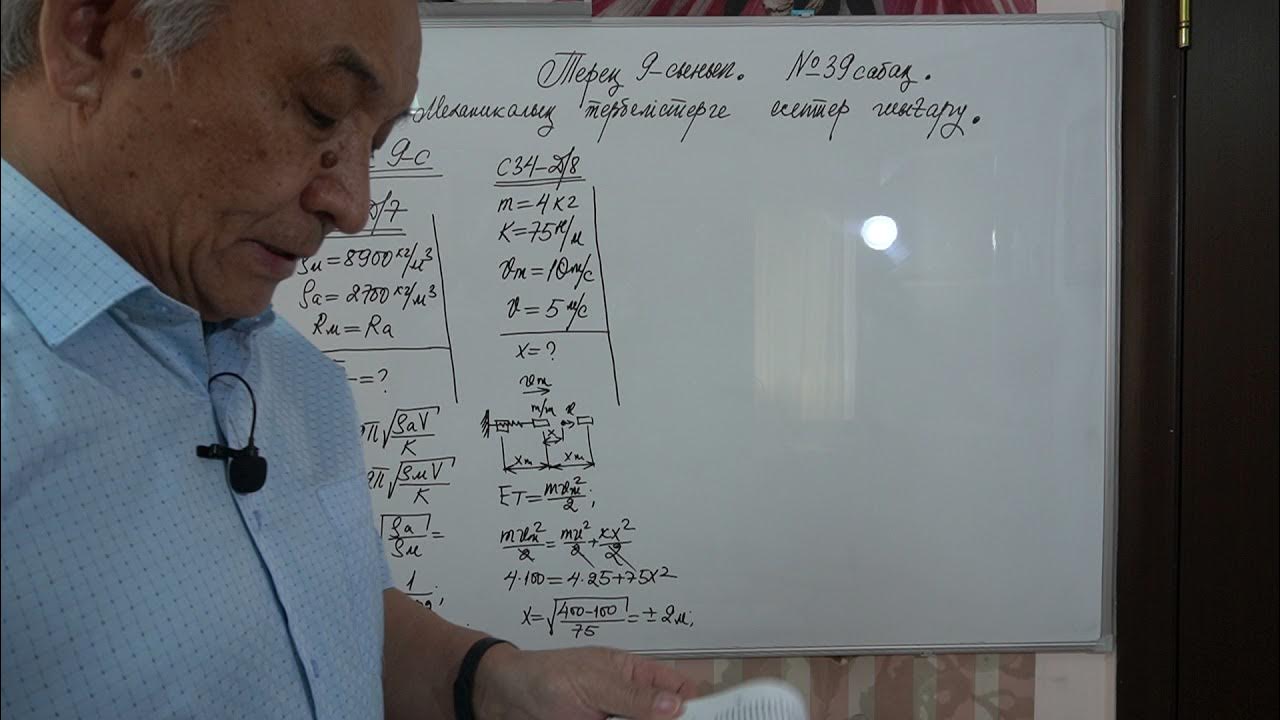 Терең 9-сынып. №39 сабақ.
Механикалық тербелістерге есептер шығару.
9-с
Д/7
ρм = 8900 кг/м³
ρа = 2700 кг/м³
Rм = Rа
= ?
π√(ρаV/K)
2π√(ρмV/K)
√(ρа/ρм) =
С34-Д/8
m = 4 кг
K = 75 Н/м
υm = 10 м/с
υ = 5 м/с
x = ?
υm
m/m
x
xm xm
ET = mυm²/2;
mυm²/2 = mυ²/2 + кx²/2
4·100 = 4·25 + 75x²
x = √((400-100)/75) = ± 2м;